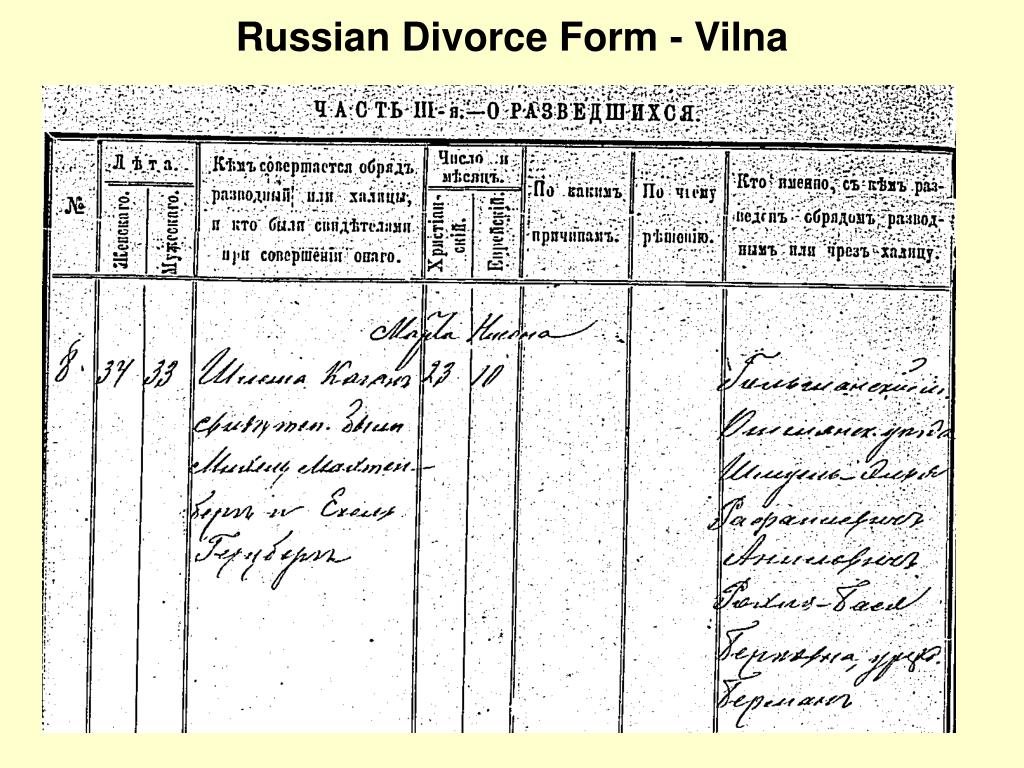 Russian Divorce Form - Vilna
ЧАСТЬ III-я.—О РАЗВЕДШИХСЯ
№
Лѣта.
Женскаго.
Мужескаго.
Кѣмъ совершается обрядъ
разводный или халицы,
и кто были свидѣтелями
при совершеніи онаго.
Число и
мѣсяцъ.
Христіан-
скій.
Еврейскій.
По какимъ
причинамъ.
По чіему
рѣшенію.
Кто именно, съ кѣмъ раз-
веденъ обрядомъ развод-
нымъ или чрезъ халицу.
8. 34 33 Шлема Каганъ 23 10
Михель Махтен-
беръ и
Герцбергъ
Гольшанскій
Ошмянск. уѣзда
Шмуель-
Рафаиловичъ
Рохля-Бася
Берковна, урожд.
Берманъ